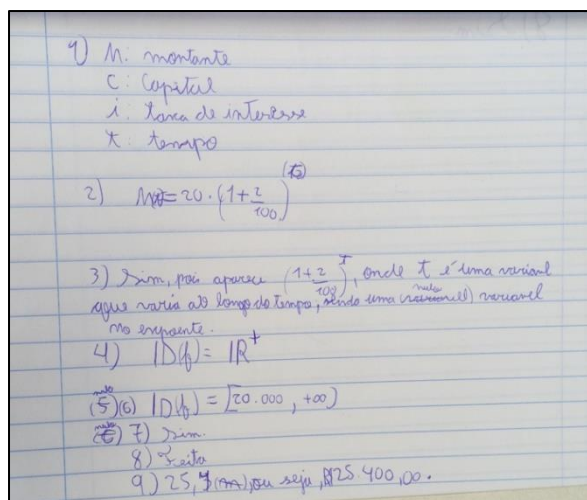 1) M: montante
C: Capital
i: taxa de interesse
t: tempo
2) M(t)=20·(1+2/100)^(t)
3) Sim, pois aparece (1+2/100)^t, onde t é uma variavel
que varia ao longo do tempo, sendo uma variavel
no expoente.
4) ID(f)= IR+
nulo
(5)(6) ID(f)=[20.000, +∞)
nulo
7) Sim.
8) Feito
9) 25, ou seja, R$25.400,00.